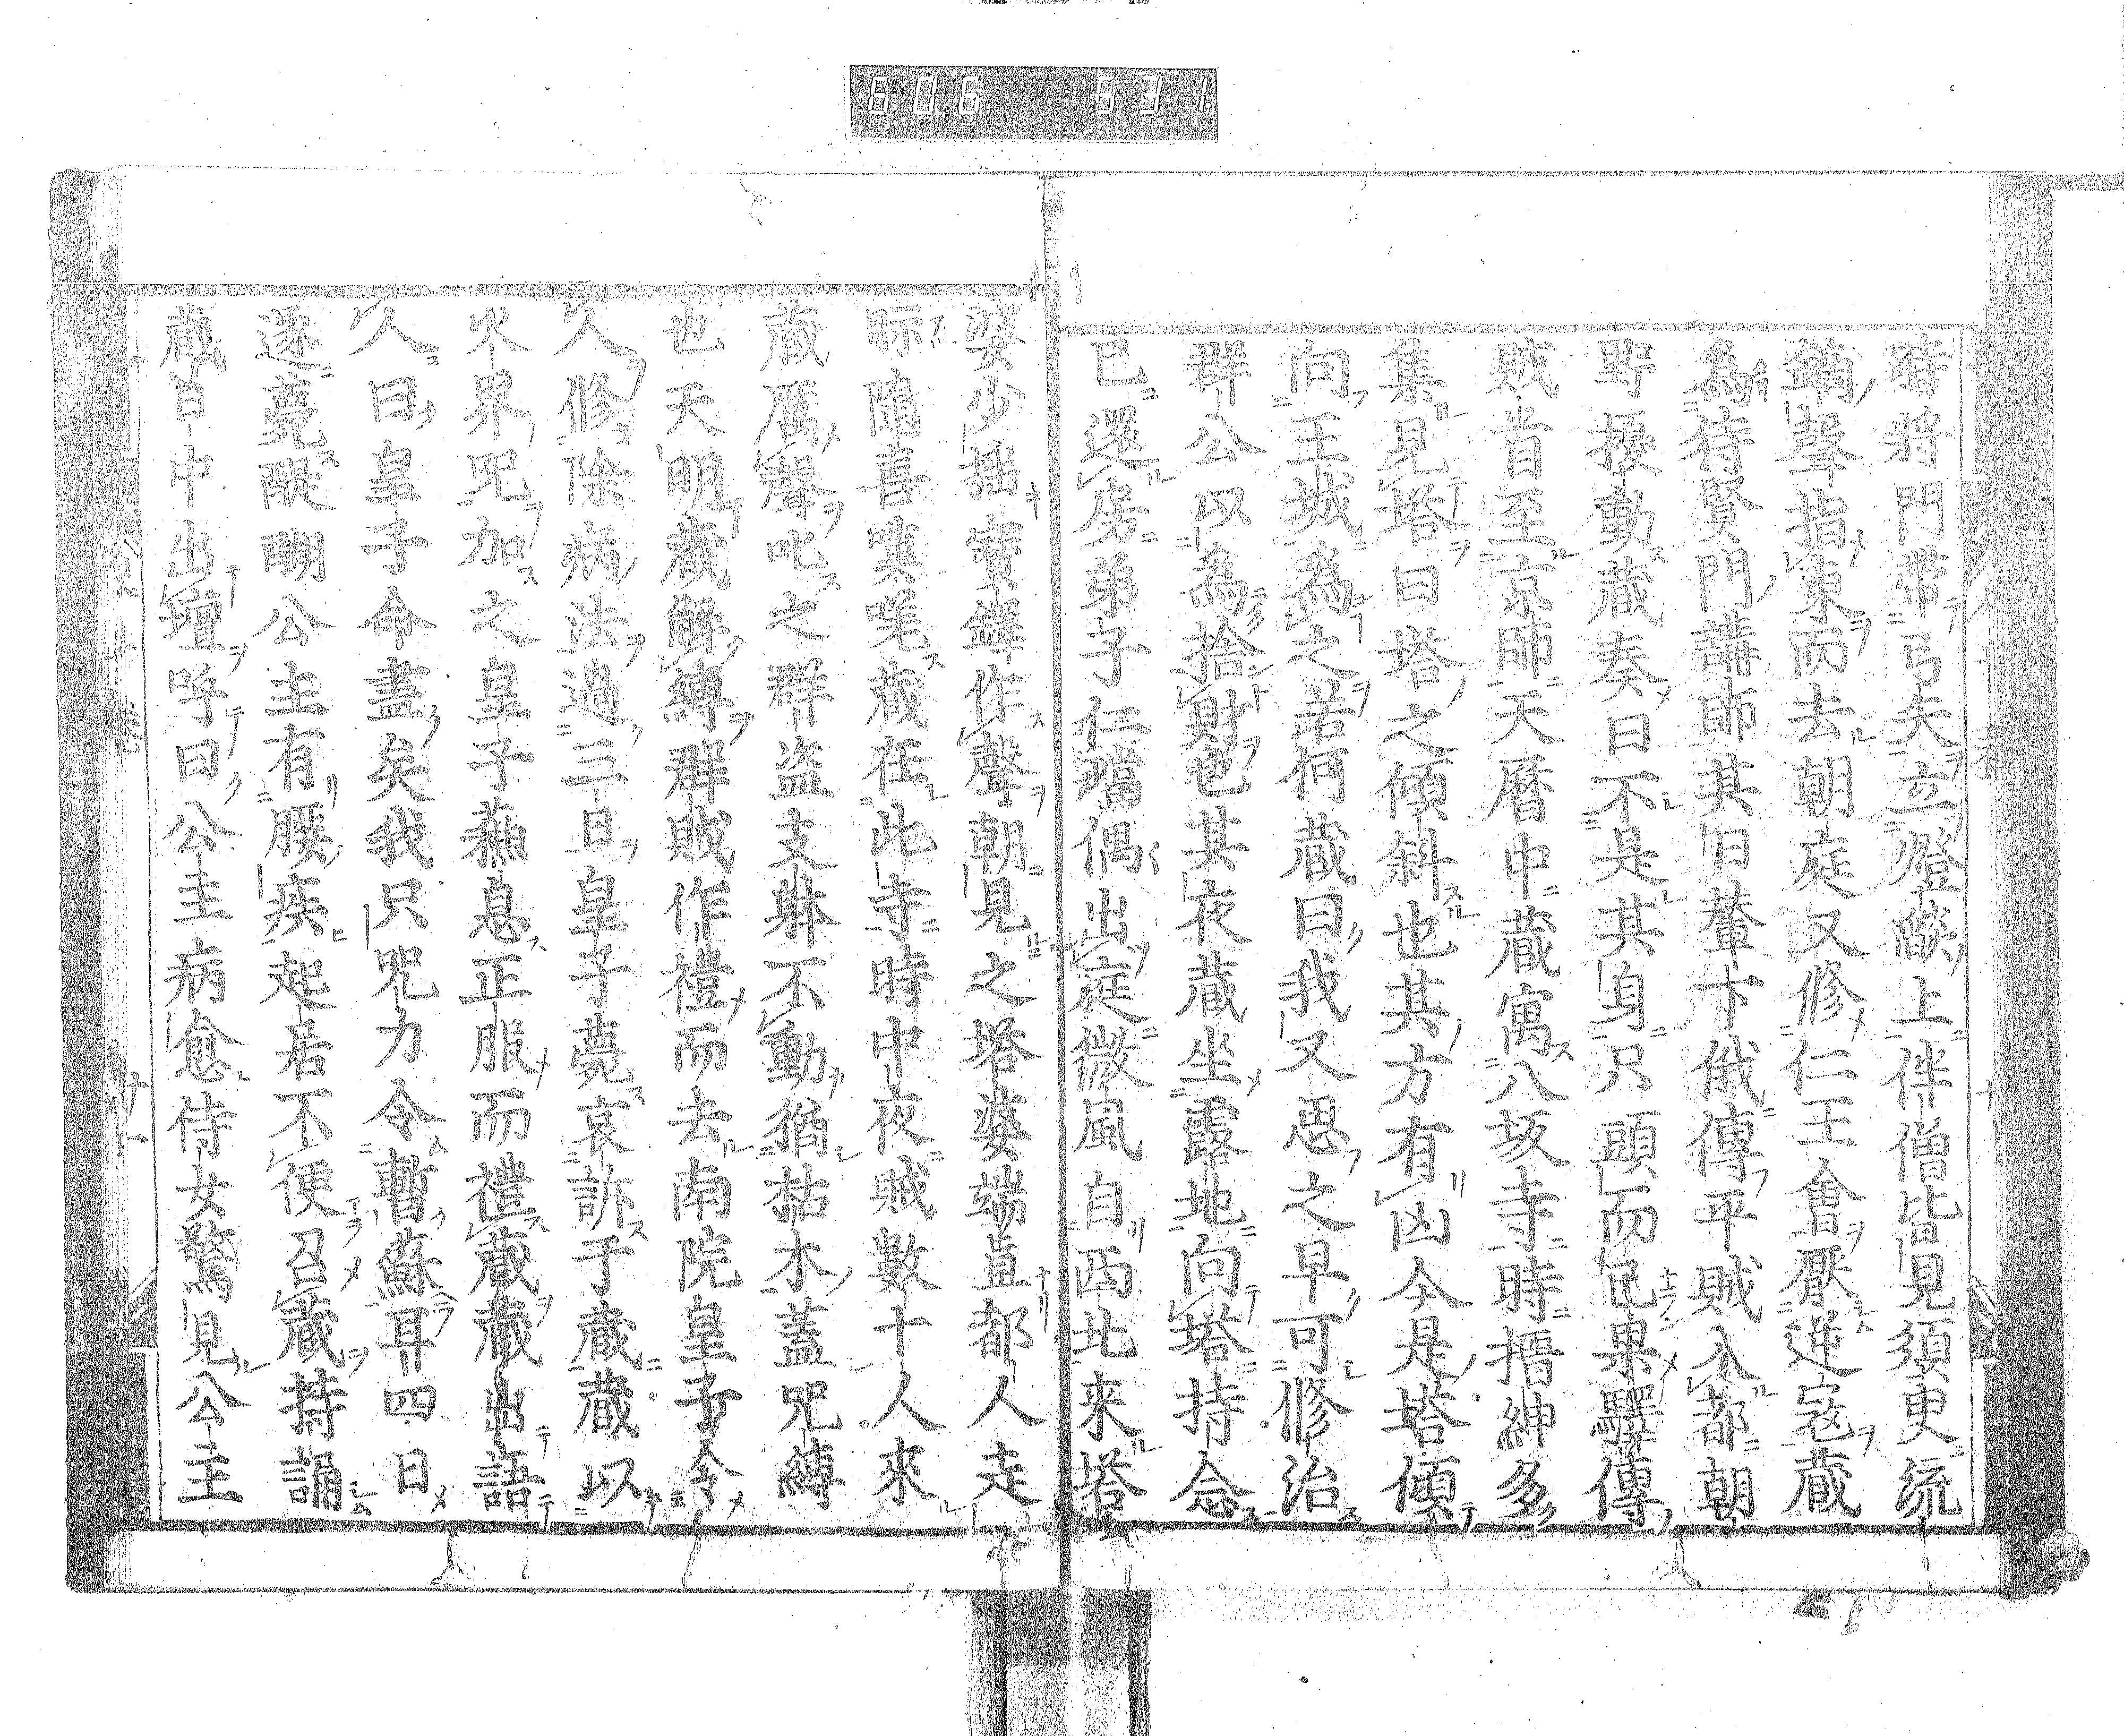 606 531
時將門帶弓矢立燈燄上伴僧皆見須臾流
鏑聲指東而去朝庭又修仁王會厭逆寇藏
為待賢門講師其日輦下俄傳平賊入都朝
野擾動藏奏曰不是其身只頭而已果驛傳
賊首至京師天曆中藏寓八坂寺時搢紳多
集見塔曰塔之傾斜也其方有凶今是塔傾
向王城為之若何藏曰我又思之早可修治
群公以為捨財也其夜藏坐露地向塔持念
已還房弟子仁璫偶出庭微風自西北来塔
婆少搖寶鐸作聲朝見之塔婆端直都人走
眎隨喜嘆嗟藏在此寺時中夜賊數十人來
藏厲聲叱之群盜支躰不動猶枯木蓋咒縛
也天明藏解縛群賊作禮而去南院皇子令
人修除病法過三日皇子薨哀訴于藏藏以
火界咒加之皇子蘇息正服而禮藏藏出語
人曰皇子命盡矣我只咒力令暫蘇耳四日
遂薨醍醐公主有腰疾起居不便召藏持誦
藏日中出壇呼曰公主病愈侍女驚見公主